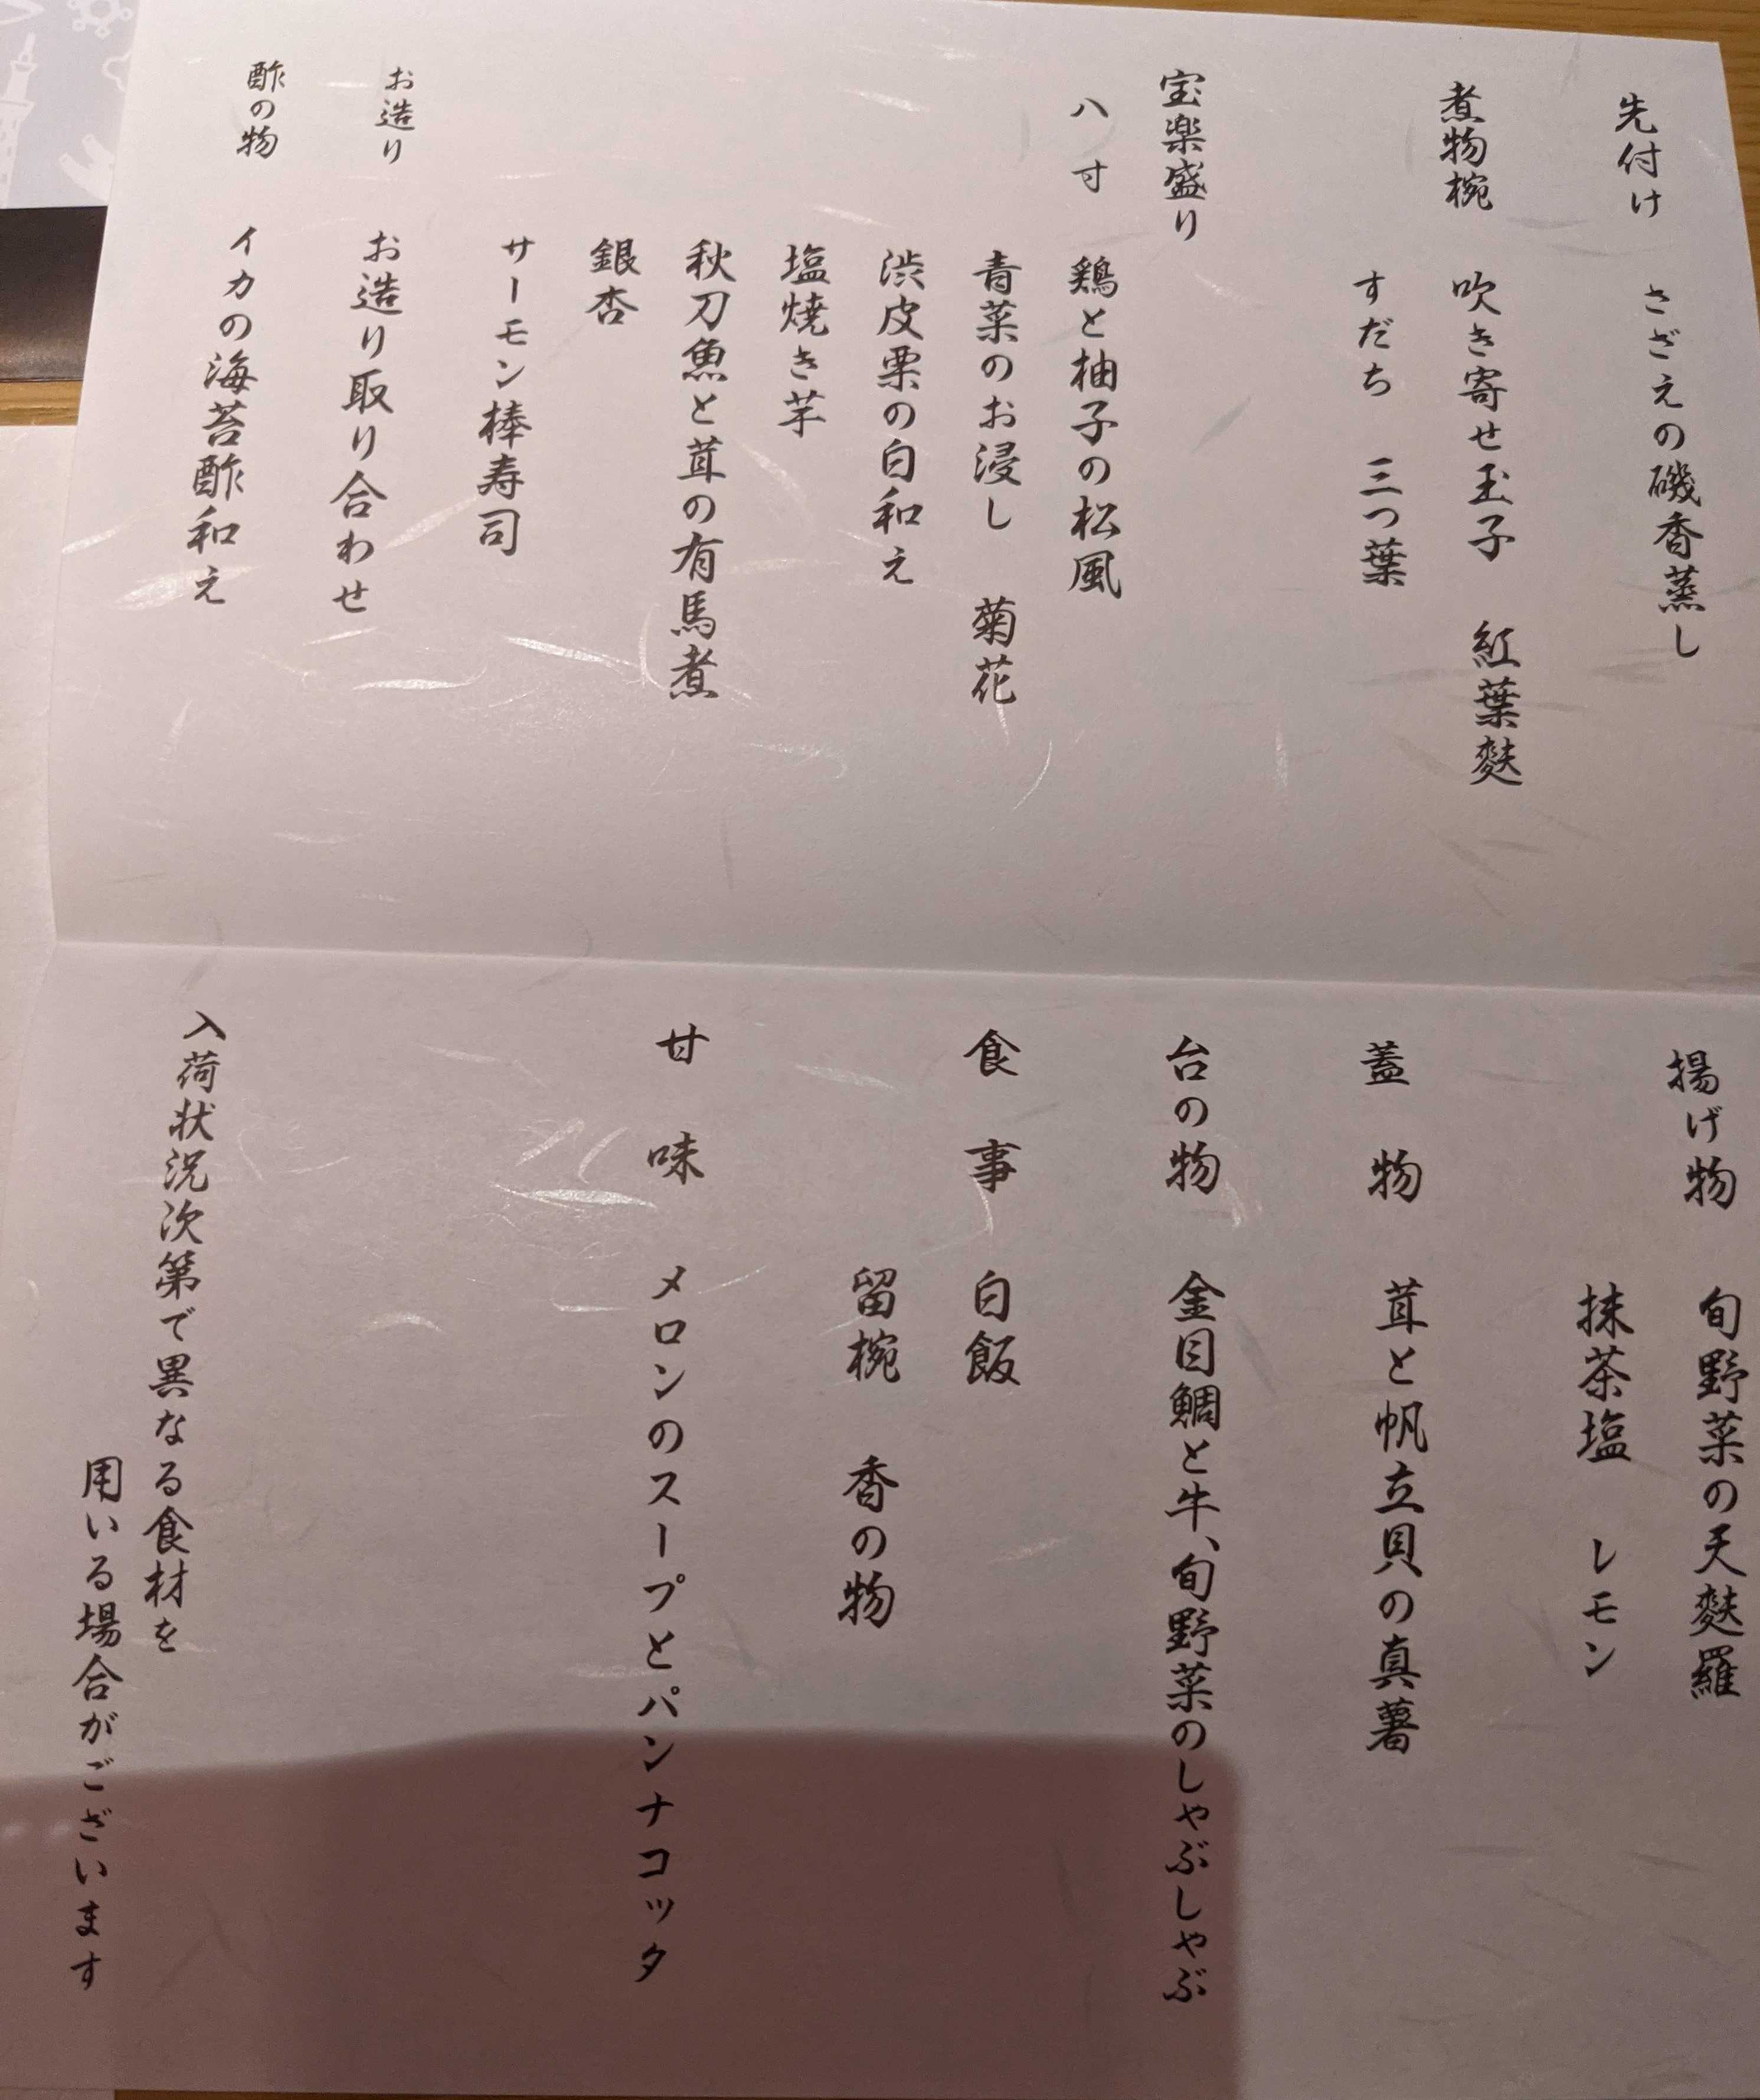 先付け　さざえの磯香蒸し
煮物椀　吹き寄せ玉子　紅葉麩
すだち　三つ葉
宝楽盛り
八寸　鶏と柚子の松風
青菜のお浸し　菊花
渋皮栗の白和え
塩焼き芋
秋刀魚と茸の有馬煮
銀杏
サーモン棒寿司
お造り　お造り取り合わせ
酢の物　イカの海苔酢和え
揚げ物　旬野菜の天麩羅
抹茶塩　レモン
蓋物　茸と帆立貝の真薯
台の物　金目鯛と牛、旬野菜のしゃぶしゃぶ
食事　白飯
留椀　香の物
甘味　メロンのスープとパンナコッタ
入荷状況次第で異なる食材を
用いる場合がございます